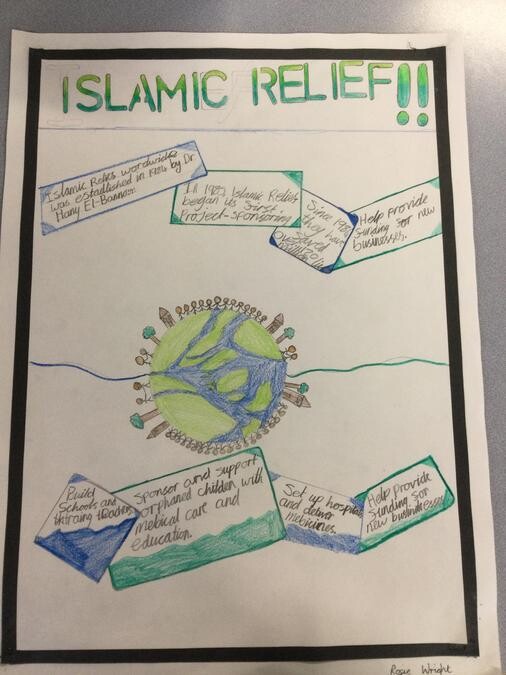 ISLAMIC RELIEF!!
Islamic Relies wordwide
was established in 1984 by Dr
Hany El-Banna
In 1984 Islamic Relief
began its first
Project-Sponsoring
Since 1984
they have
saved
Help Provide
funding for new
businesses.
Build
Schools and
training teachers
Sponsor and support
orphaned children with
medical care and
education.
Set up hospitals
and deliver
medicines.
Help Provide
funding for
new businesses
Rosie Wright